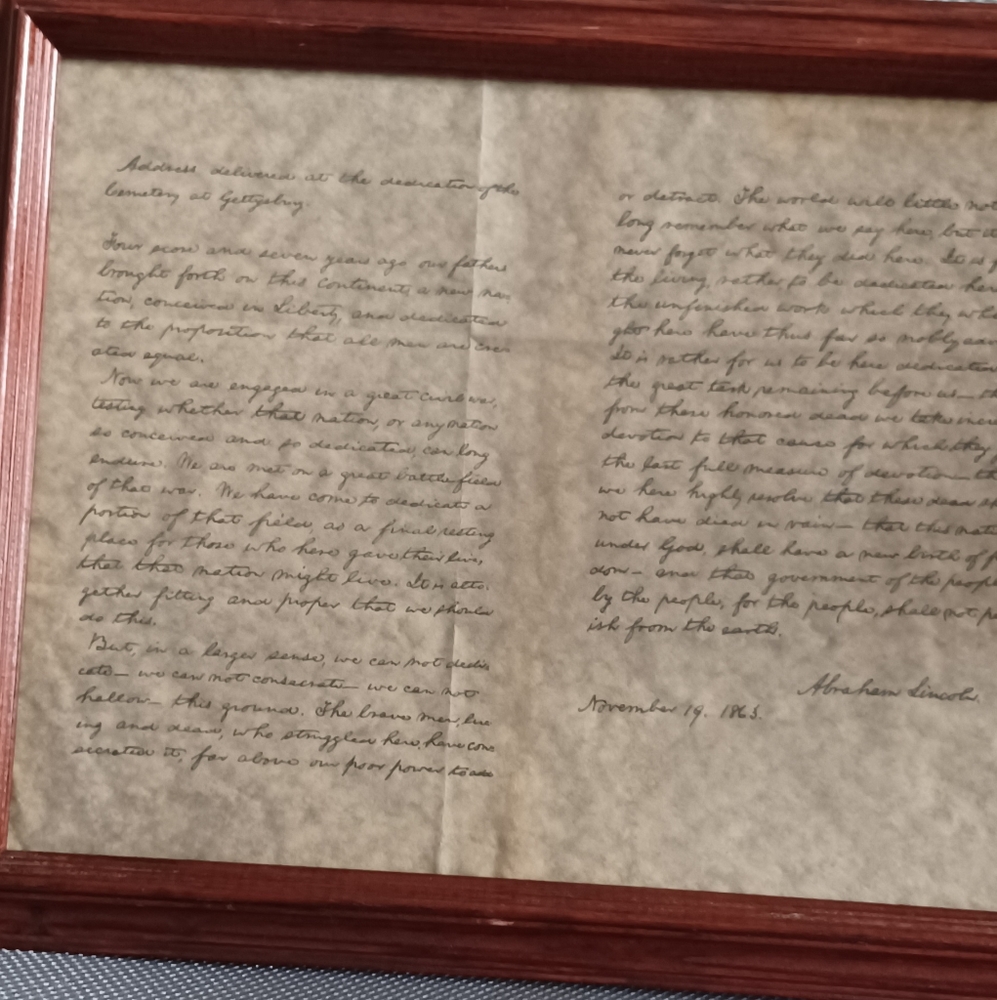 Address delivered at the dedication of the
Cemetery at Gettysburg.
Four score and seven years ago our fathers
brought forth on this continent, a new na-
tion, conceived in Liberty, and dedicated
to the proposition that all men are cre-
ated equal.
Now we are engaged in a great civil war,
testing whether that nation, or any nation
so conceived and so dedicated, can long
endure. We are met on a great battle field
of that war. We have come to dedicate a
portion of that field, as a final resting
place for those who here gave their lives,
that that nation might live. It is alto-
gether fitting and proper that we should
do this.
But, in a larger sense, we can not dedi-
cate— we can not consecrate— we can not
hallow— this ground. The brave men, liv-
ing and dead, who struggled here, have con-
secrated it, far above our poor power to add
or detract. The world will little not
long remember what we say here, but it
never forget what they did here. It is
the living, rather, to be dedicated here
the unfinished work which they who
here have thus far so nobly adv
It is rather for us to be here dedicated
the great task remaining before us— 
from these honored dead we take incre
devotion to that cause for which they
the last full measure of devotion— th
we here highly resolve that these dead sh
not have died in vain— that this nati
under God, shall have a new birth of f
dom— and that government of the peopl
by the people, for the people, shall not per
ish from the earth.
Abraham Lincoln.
November 19. 1863.